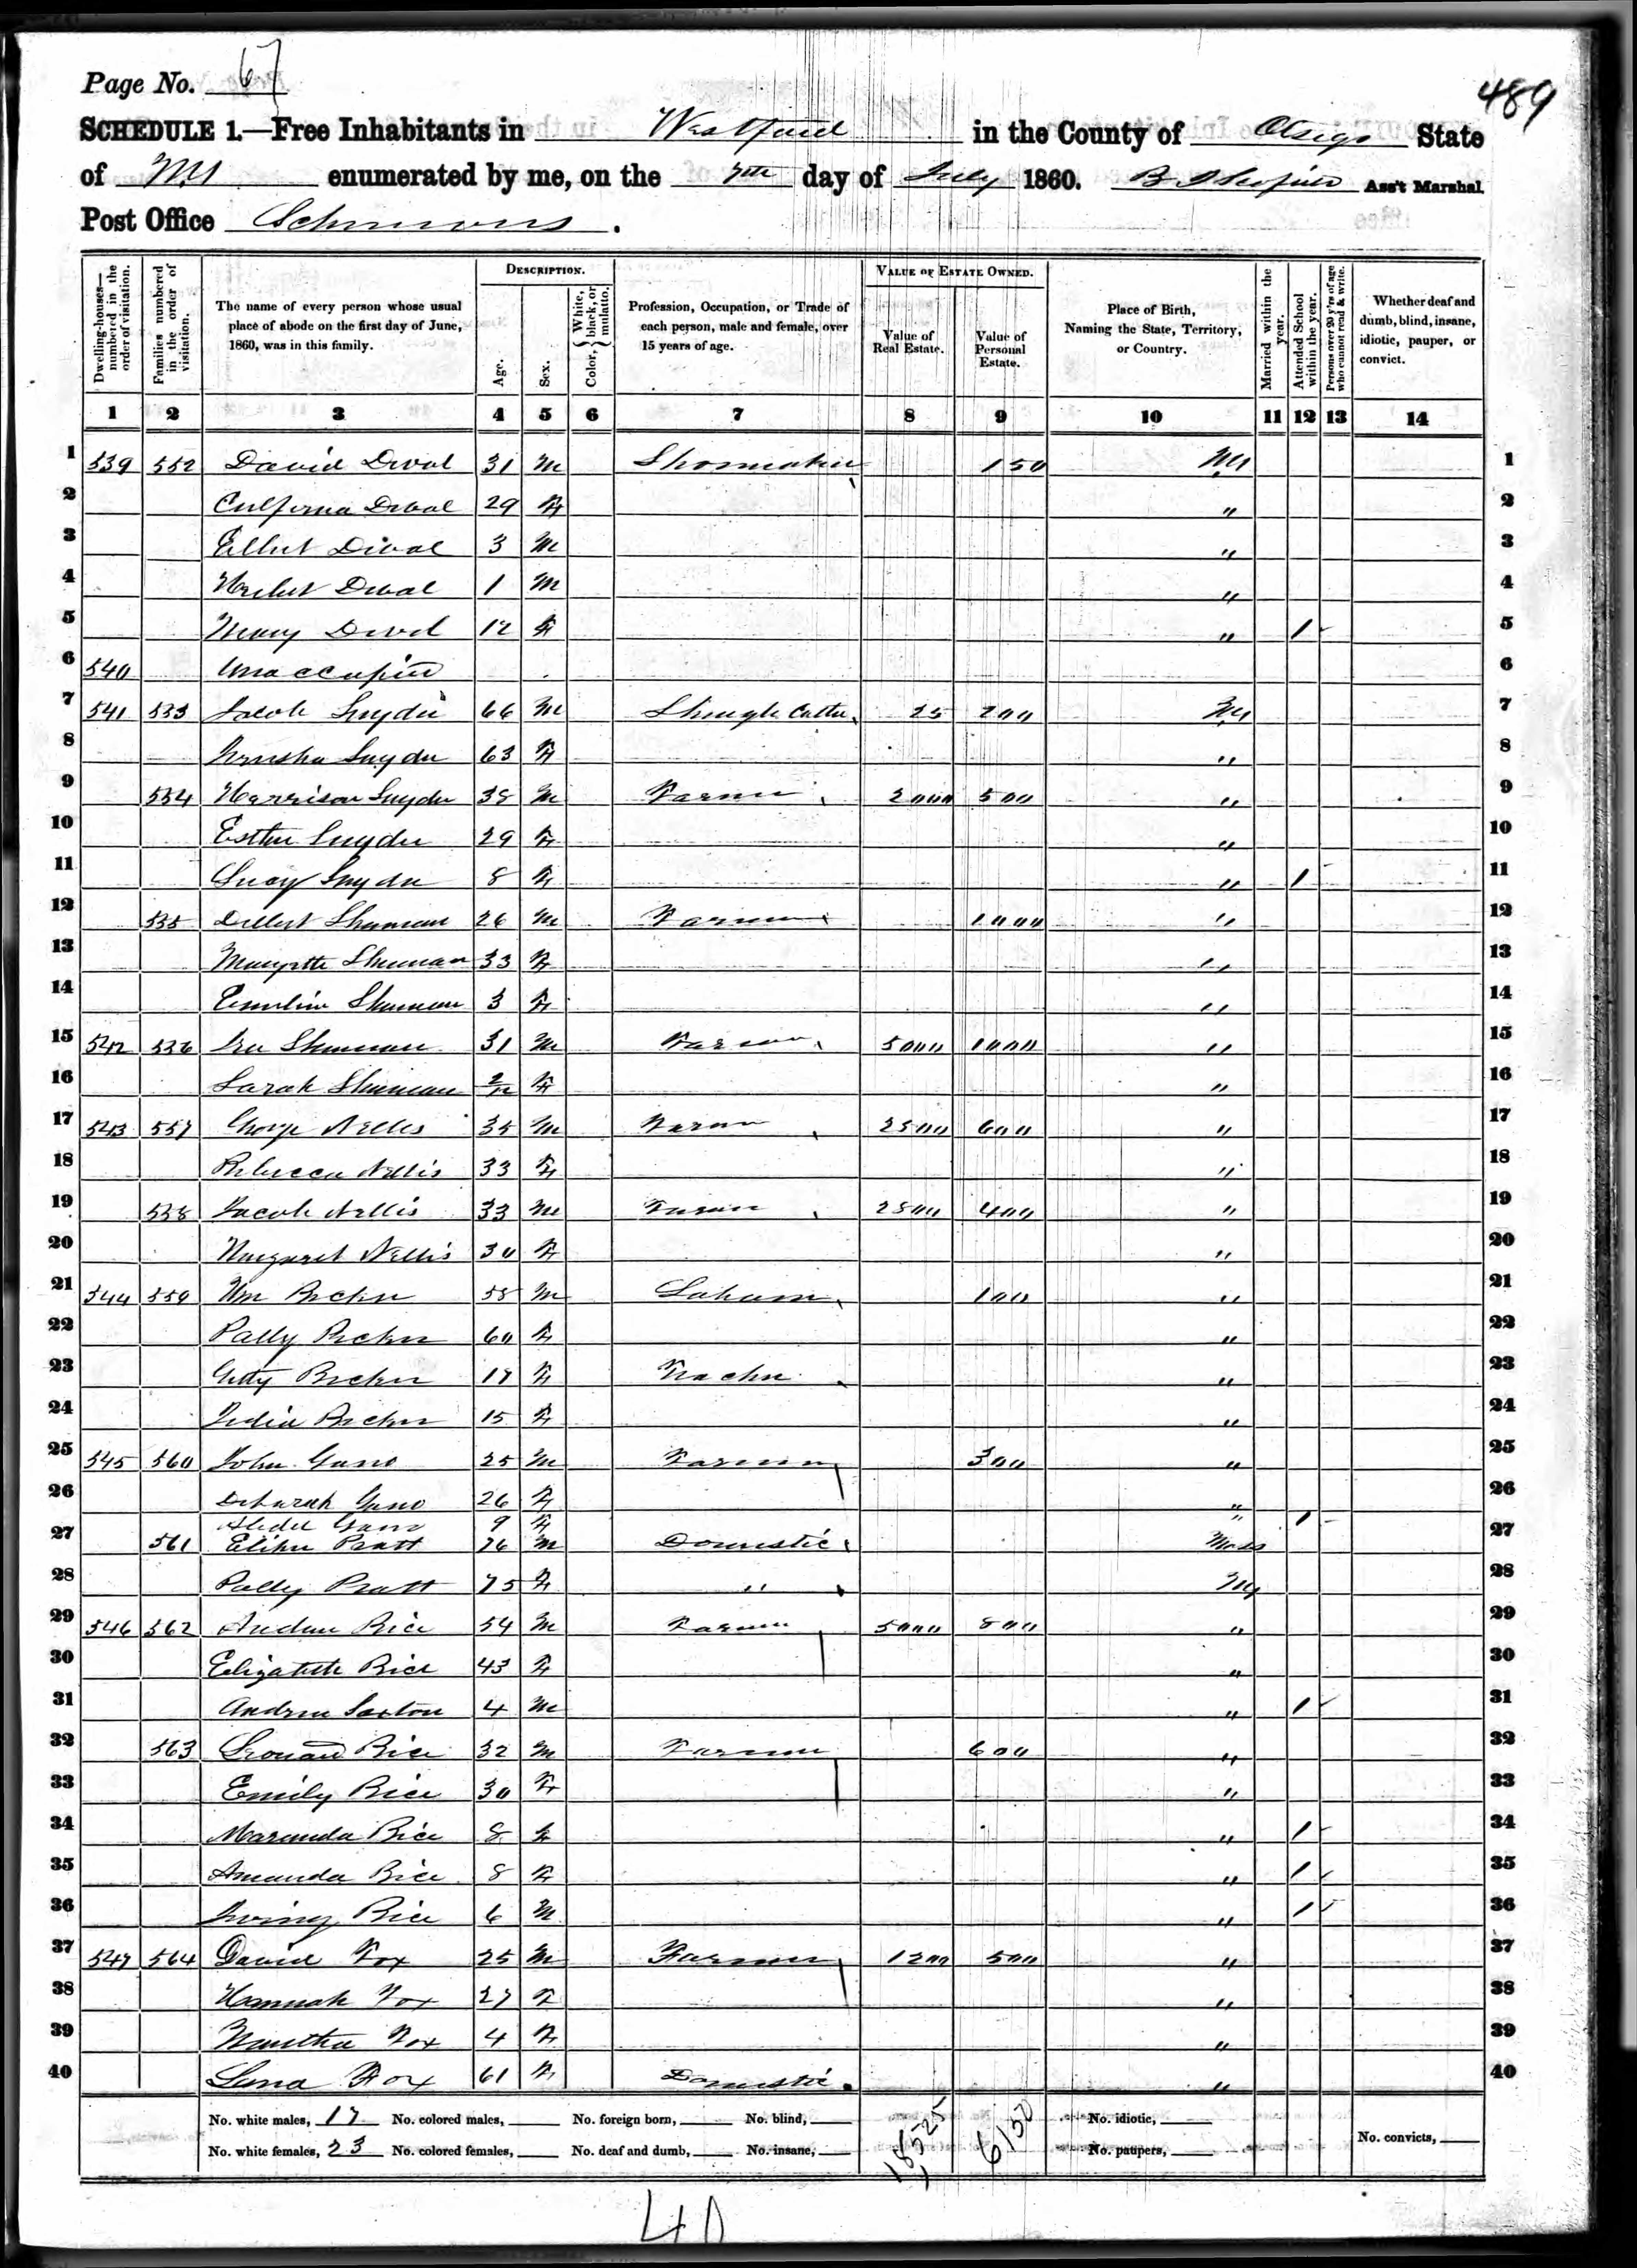 Page No. 67
489
SCHEDULE 1.—Free Inhabitants in Westford in the County of Otsego State
of NY enumerated by me, on the 7th day of July 1860. Ass't Marshal.
Post Office .
Dwelling-houses—numbered in the order of visitation.
Families numbered in the order of visitation.
The name of every person whose usual place of abode on the first day of June, 1860, was in this family.
DESCRIPTION.
Age.
Sex.
Color, {White, black, or mulatto.
Profession, Occupation, or Trade of each person, male and female, over 15 years of age.
VALUE OF ESTATE OWNED.
Value of Real Estate.
Value of Personal Estate.
Place of Birth, Naming the State, Territory, or Country.
Married within the year.
Attended School within the year.
Persons over 20 y'rs of age who cannot read & write.
Whether deaf and dumb, blind, insane, idiotic, pauper, or convict.
1 2 3 4 5 6 7 8 9 10 11 12 13 14
1 539 552 David 31 M Shoemaker 150 NY 1
2 29 F " 2
3 3 M " 3
4 1 M " 4
5 Mary 12 F " 1 5
6 540 Unoccupied 6
7 541 533 Jacob Snyder 66 M Shingle Cutter 25 200 NY 7
8 Snyder 63 F " 8
9 534 Harrison Snyder 38 M Farmer 2000 500 " 9
10 Esther Snyder 29 F " 10
11 Lucy Snyder 8 F " 1 11
12 535 Shuman 26 M Farmer 1000 " 12
13 Shuman 33 F " 13
14 Emeline Shuman 3 F " 14
15 542 536 Ira Shuman 31 M Farmer 5000 1000 " 15
16 Sarah Shuman 2/12 F " 16
17 543 557 George Nellis 35 M Farmer 2500 600 " 17
18 Rebecca Nellis 33 F " 18
19 538 Jacob Nellis 33 M Farmer 2800 400 " 19
20 Margaret Nellis 30 F " 20
21 544 559 Wm Becker 58 M 100 " 21
22 Polly Becker 60 F " 22
23 Getty Becker 17 F Teacher " 23
24 Becker 15 F " 24
25 545 560 John Gano 25 M Farmer 300 " 25
26 Deborah Gano 26 F " 26
Gano 9 F " 1
27 561 Elihu Pratt 76 M Domestic Mass 27
28 Polly Pratt 75 F " NY 28
29 546 562 Andrew Rice 54 M Farmer 5000 800 " 29
30 Elizabeth Rice 43 F " 30
31 Andrew Saxton 4 M " 1 31
32 563 Leonard Rice 32 M Farmer 600 " 32
33 Emily Rice 30 F " 33
34 Marinda Rice 8 F " 1 34
35 Amanda Rice 8 F " 1 35
36 Irving Rice 6 M " 1 36
37 547 564 David Fox 25 M Farmer 1200 500 " 37
38 Hannah Fox 27 F " 38
39 Martha Fox 4 F " 39
40 Lana Fox 61 F Domestic " 40
No. white males, 17 No. colored males, No. foreign born, No. blind, No. idiotic,
No. white females, 23 No. colored females, No. deaf and dumb, No. insane, No. paupers, No. convicts,
6150
40